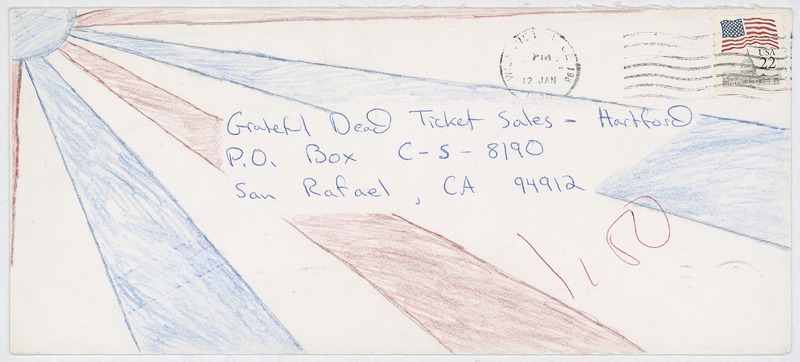 PM
12 JAN
198
USA
22
Grateful Dead Ticket Sales - Hartford
P.O. Box C-S-8190
San Rafael, CA 94912